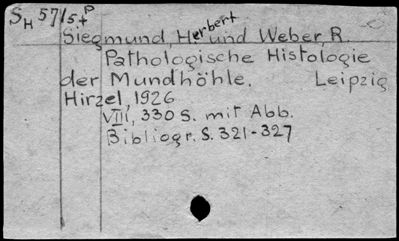 S_H 57/5+P
Siegmund, Herbert und Weber, R.
Pathologische Histologie
der Mundhöhle. Leipzig
Hirzel, 1926
VIII, 330 S. mit Abb.
Bibliogr. S. 321-327